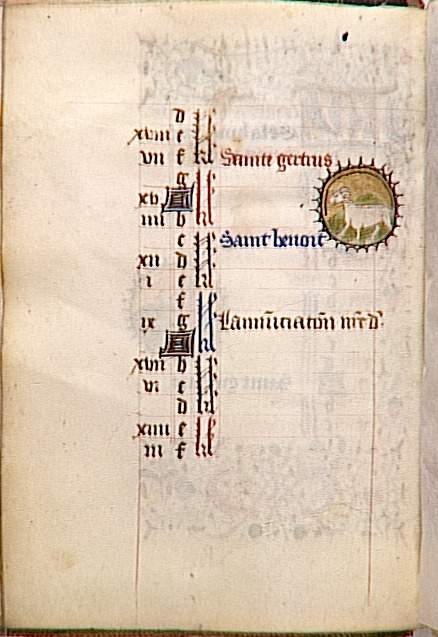 d
xviii e
vii f Sainte gertrus
g
xv A
iiii b
c Saint benoit
xii d
i e
f
ix g Lannūciatōn nr̄e d
A
xvii b
vi c
d
xiiii e
iii f